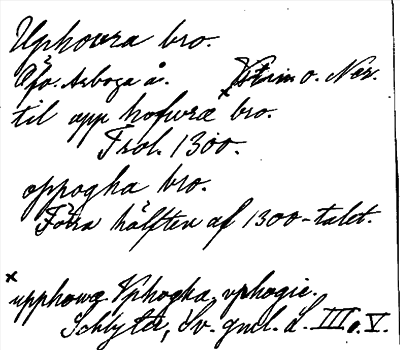 Uphovra bro.
Öfv. Arboga å. Västm o. När.
til upp hofwræ x bro.
Trol. 1300.
oppogha bro.
Förra hälften af 1300-talet.
x upphowæ Vphogha, vphogie.
Schlyter, Sv. gml. L. III o. V.